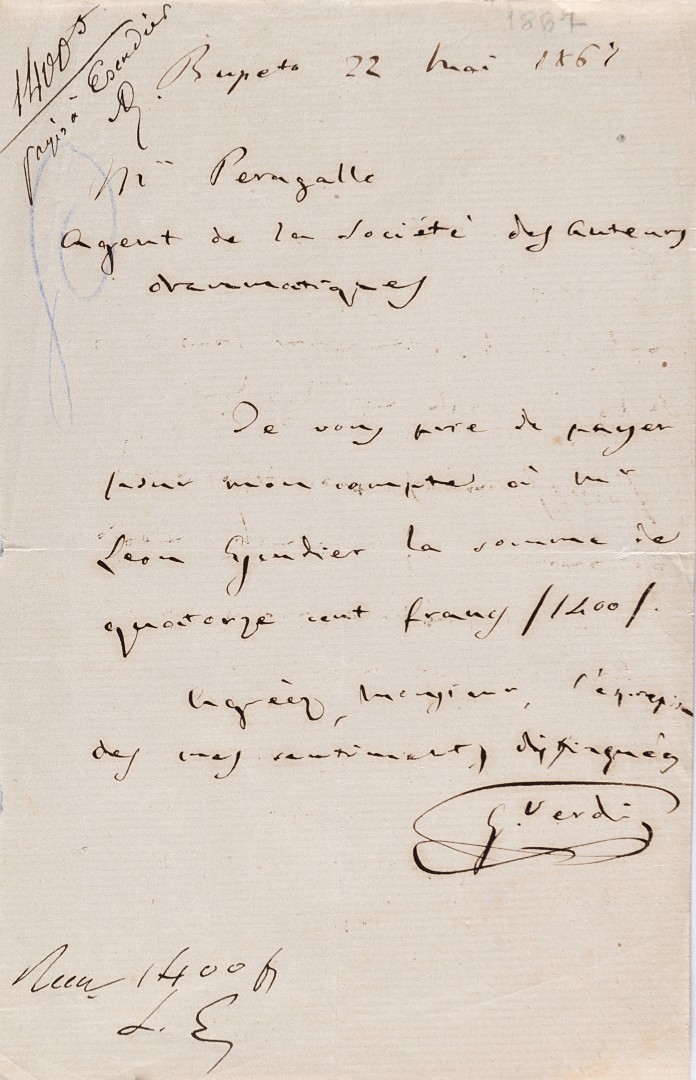 1867
1400 f
payés à Escudier
Bupeto 22 Mai 1867
Mr Peragalle
Agent de la Société des Auteurs
drammatiques
Je vous prie de payer
pour mon compte à Mr
Leon Escudier la somme de
quatorze cent francs /1400/.
Agréez, Monsieur, l'expression
des mes sentiments distingués
G. Verdi
1400 fr
L. E